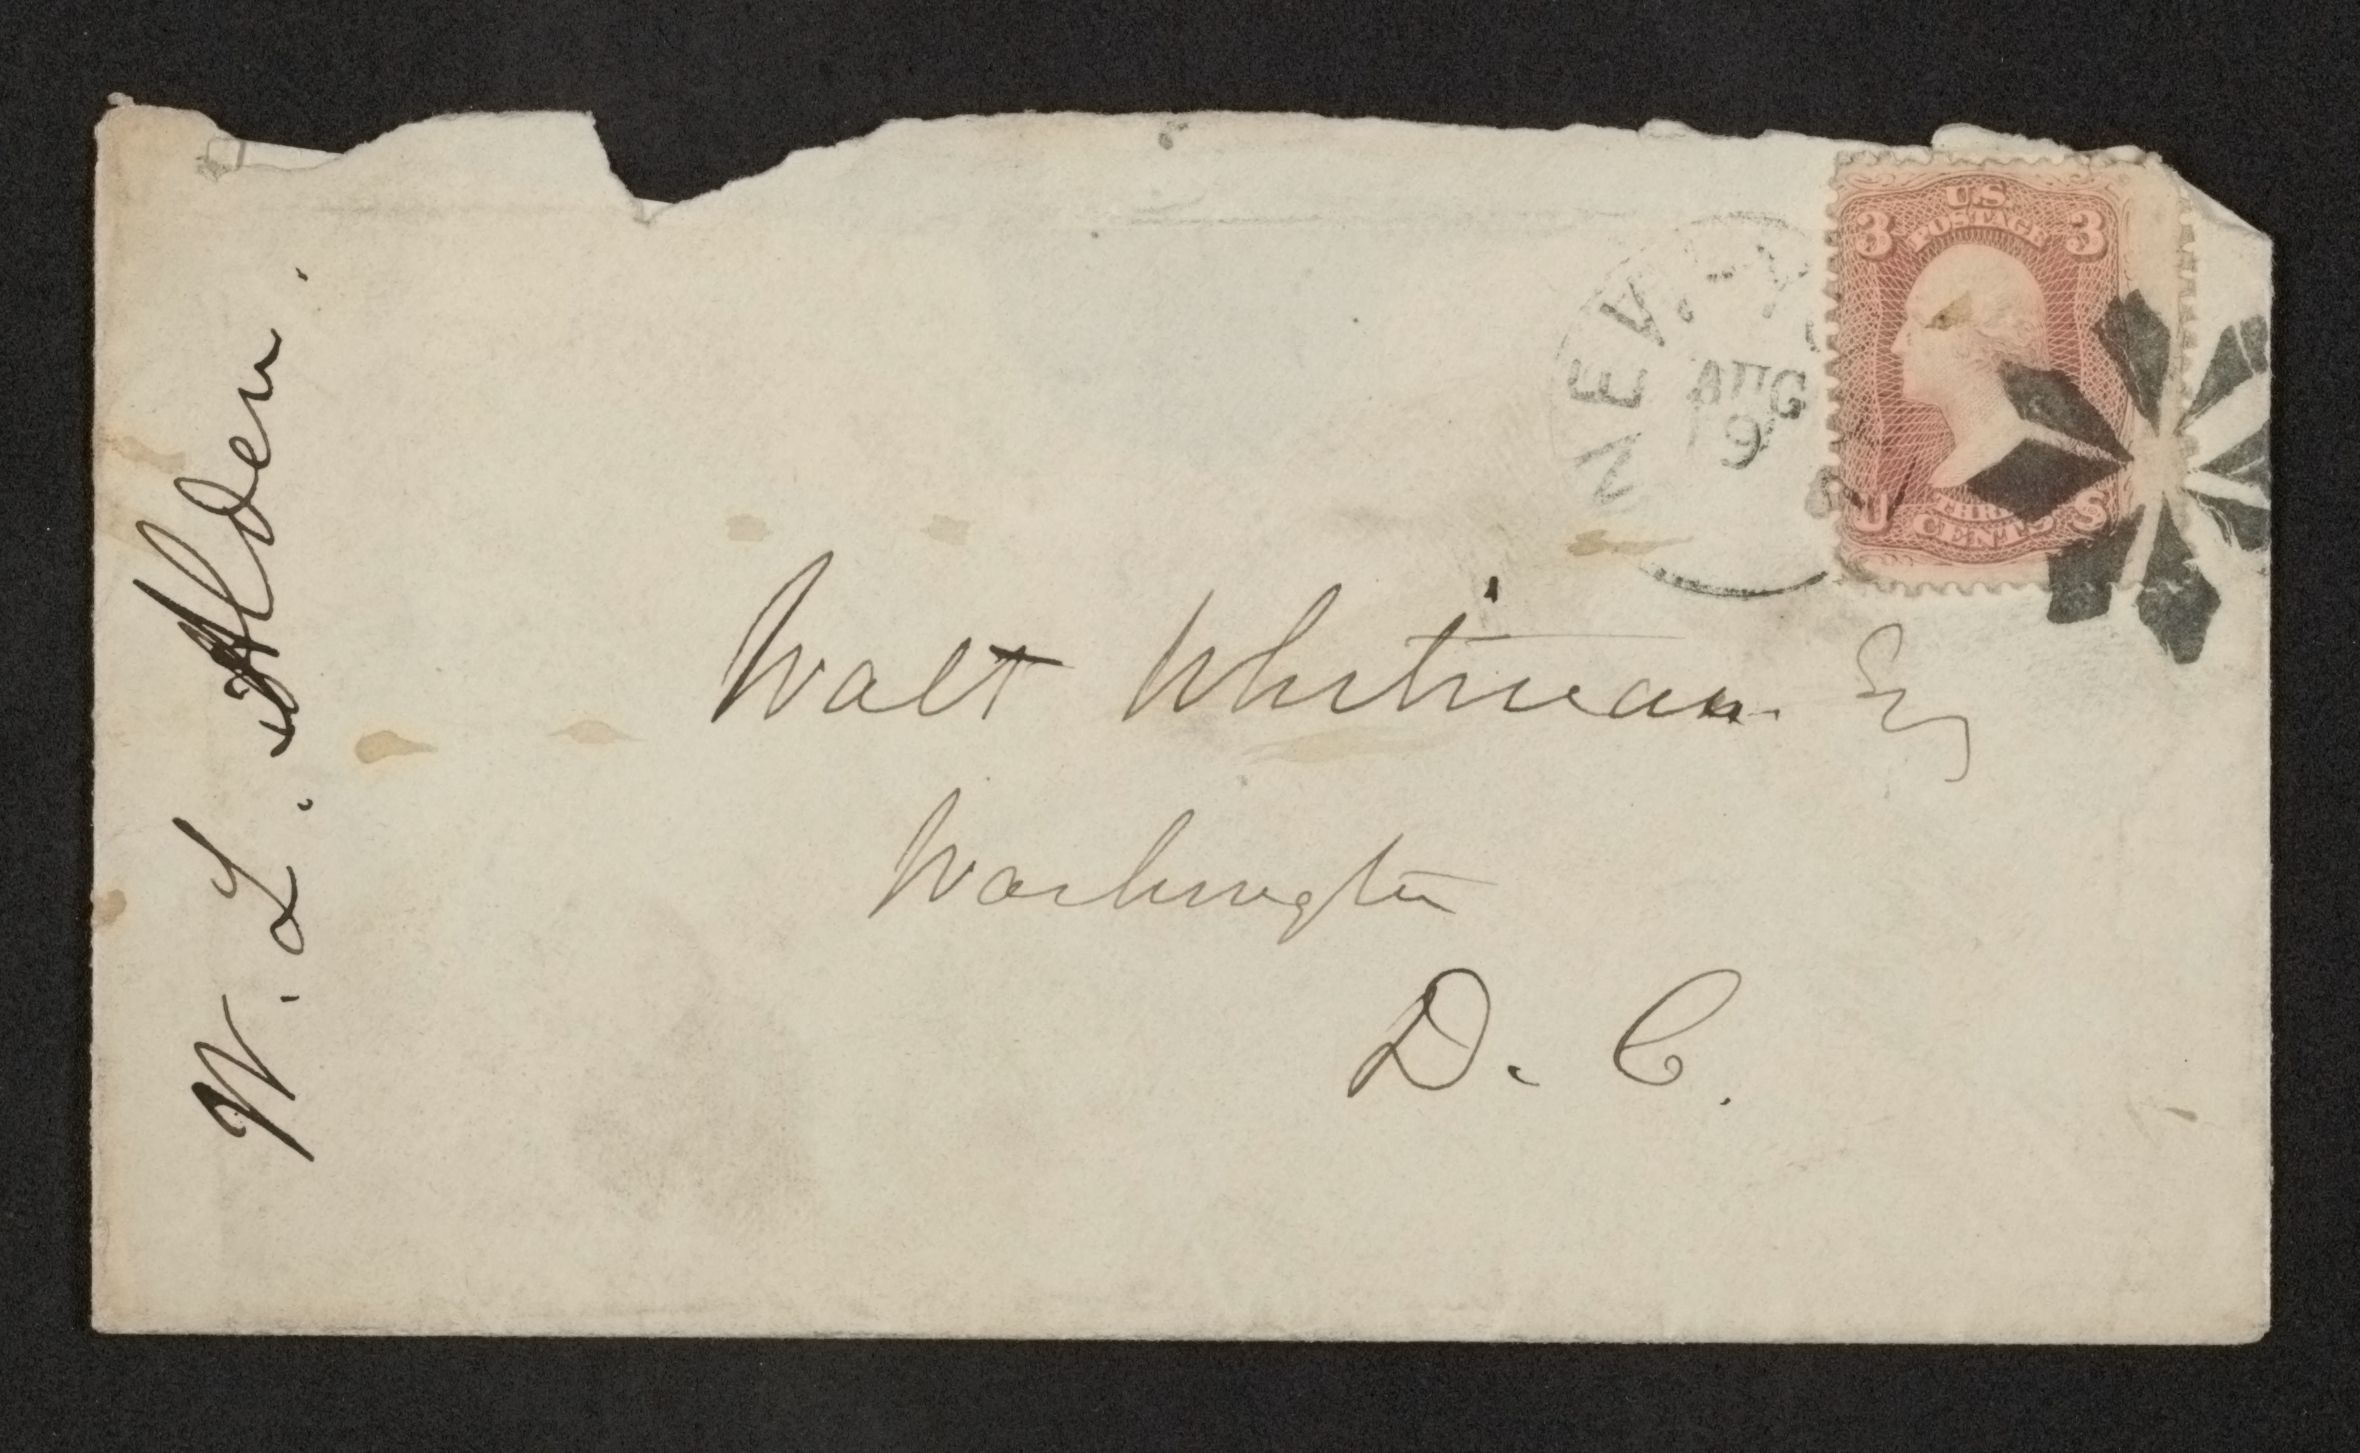 W. L. Alden.
NEW-Y
AUG
19
U.S.
POSTAGE
3 3
THREE
CENTS
Walt Whitman Esq
Washington
D. C.